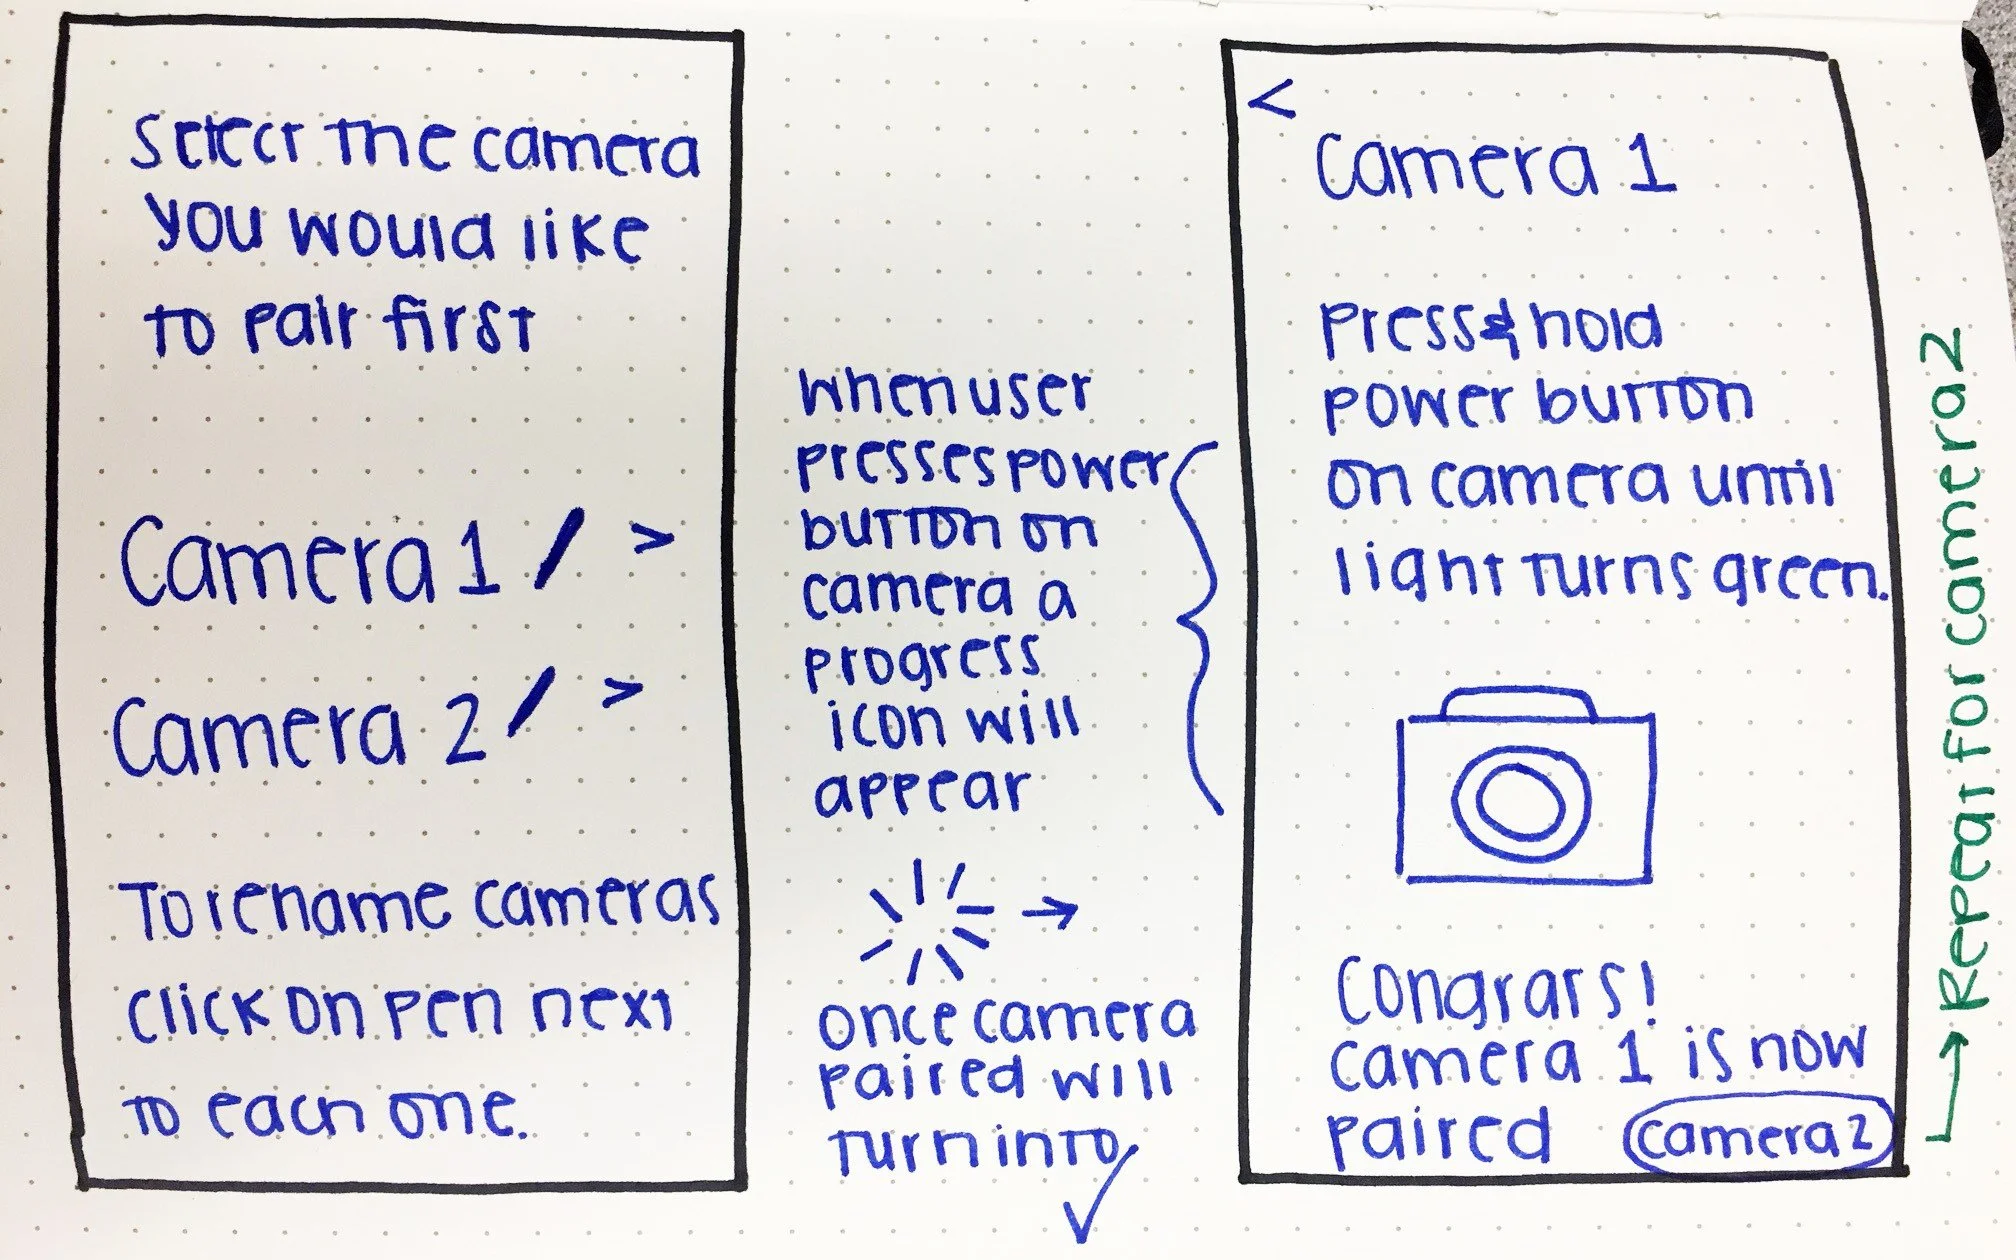 Select the camera
you would like
to pair first
Camera 1 >
Camera 2 >
To rename cameras
click on pen next
to each one.
when user
presses power
button on
camera a
progress
icon will
appear
→
once camera
paired will
turn into
✓
<
Camera 1
press & hold
power button
on camera until
light turns green.
Congrats!
camera 1 is now
paired camera 2
→ Repeat for camera 2